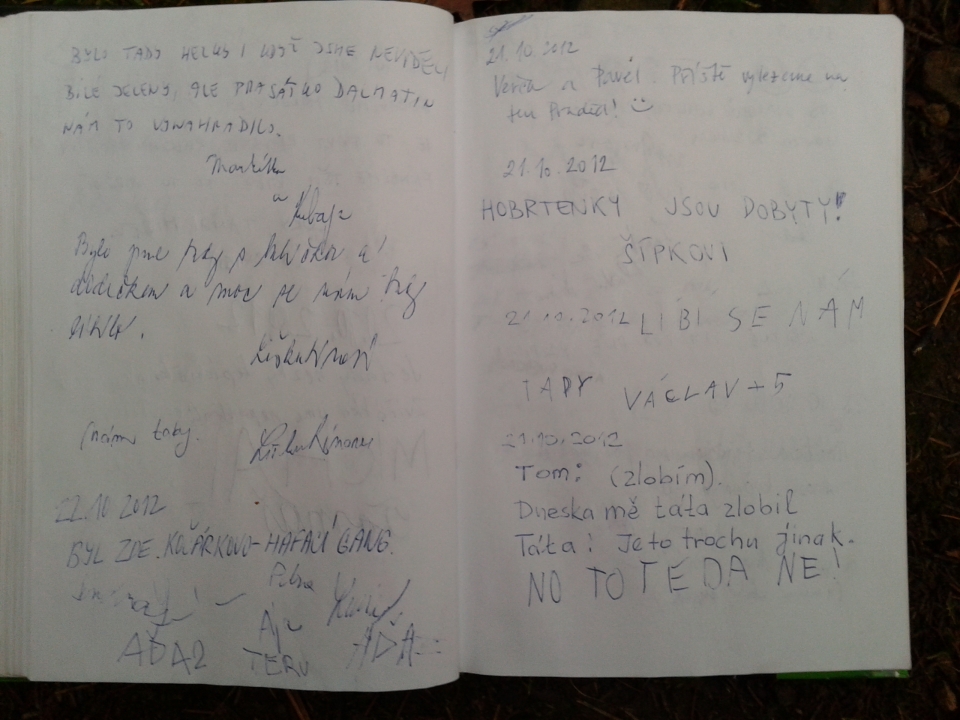 BYLO TADY HEZKY I KDYŽ JSME NEVIDĚLI
BÍLÉ JELENY, ALE PRASÁTKO DALMATIN
NÁM TO VYNAHRADILO.
Markétka
a
Kubajz
Byli jsme tady s
dědečkem a moc se nám tady
líbilo.
22.10 2012
BYL ZDE KOČÁRKOVO-HAFACÍ GANG.
TERY
21.10.2012
Verča a Pavel. Příště vylezeme na
ten Praděd! :)
21.10.2012
HOBRTENKY JSOU DOBYTY!
ŠÍPKOVI
21.10.2012 LÍBÍ SE NÁM
TADY VÁCLAV + 5
21.10.2012
Tom: (zlobím).
Dneska mě táta zlobil
Táta: Je to trochu jinak.
NO TO TEDA NE!